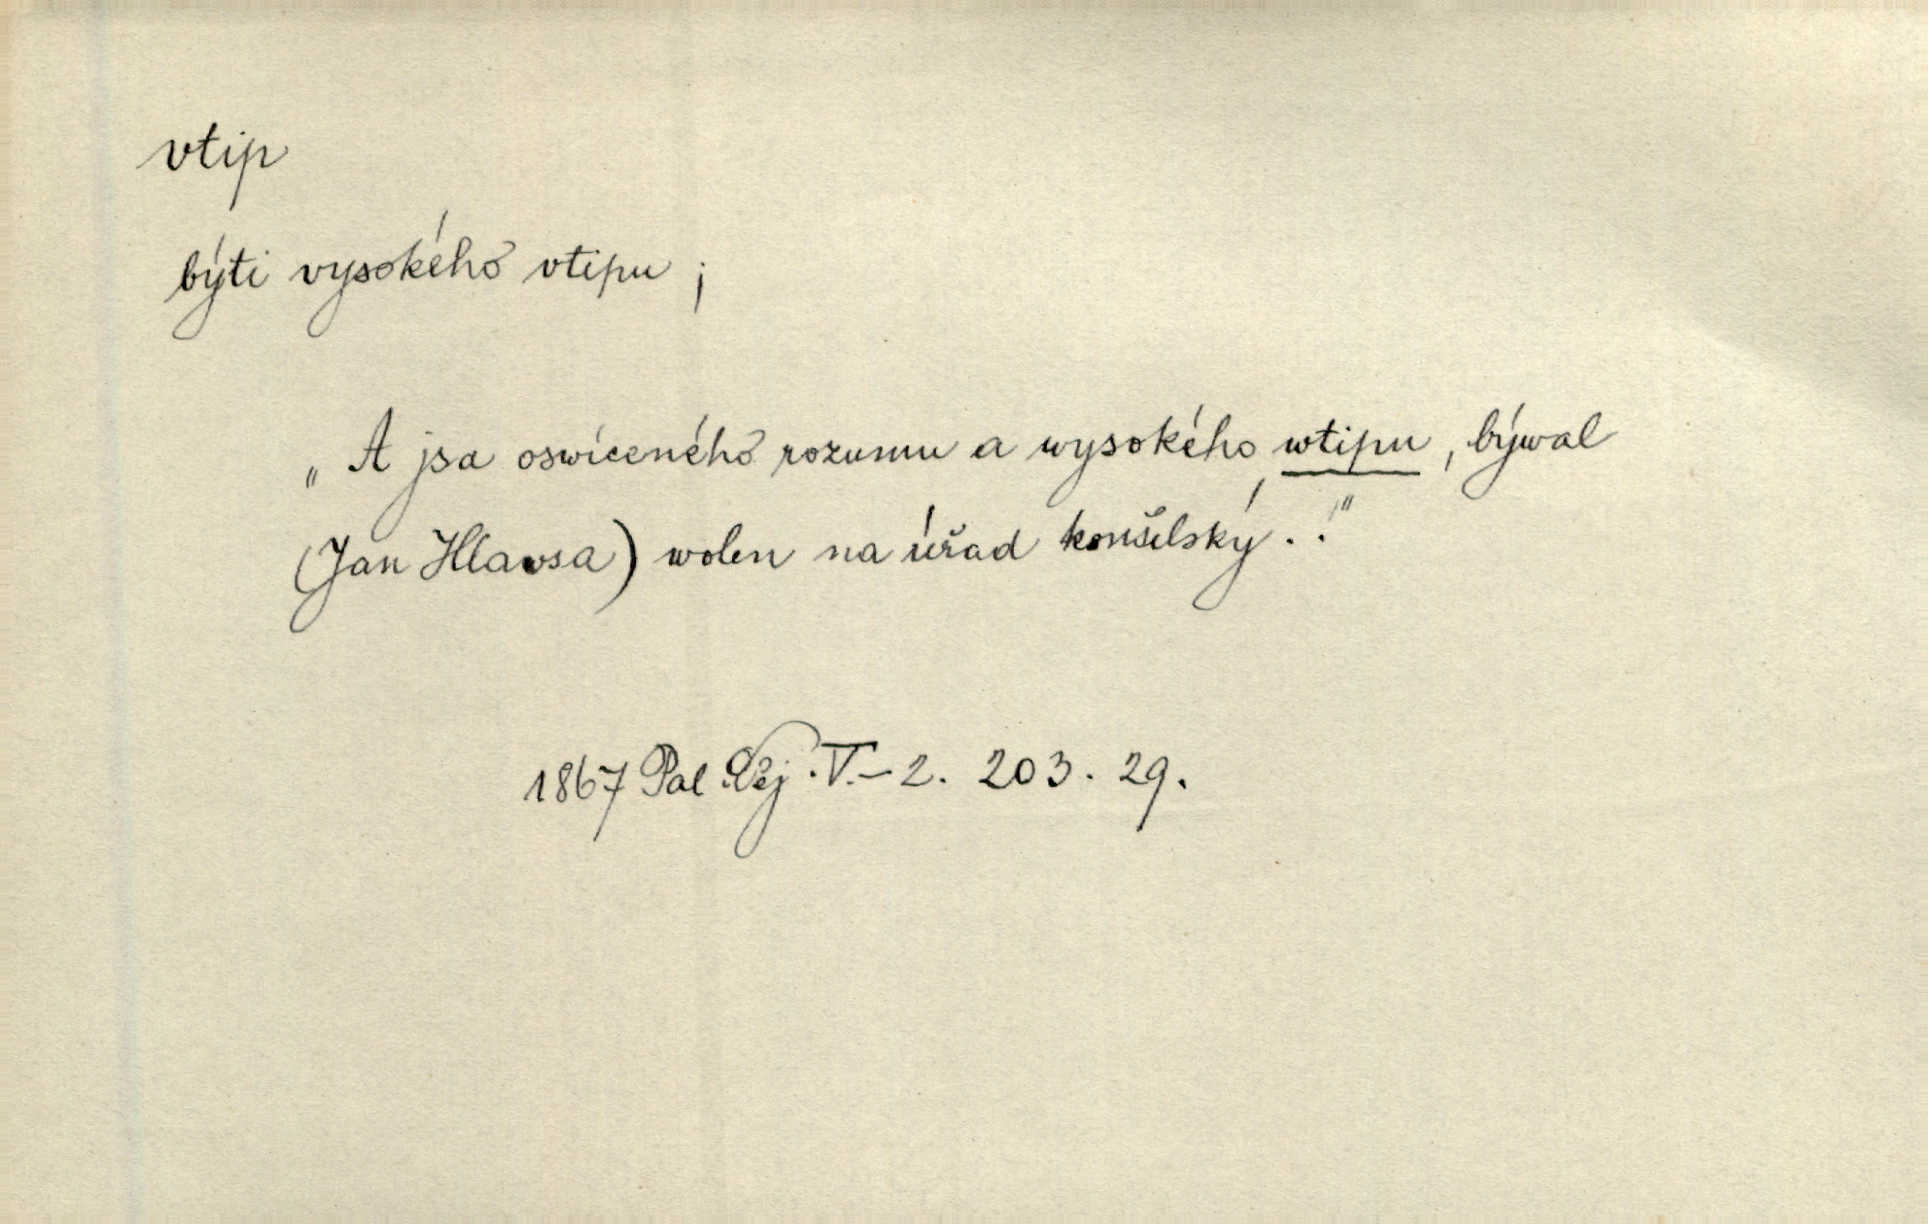 vtip
býti vysokého vtipu ;
„A jsa oswíceného rozumu a wysokého wtipu, býwal
(Jan Hlavsa) wolen na úřad konšelský . ."
1867 Pal. Děj. V.-2. 203. 29.